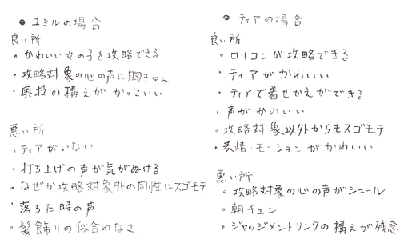 ● ユミルの場合
良い所
• かわいい女の子を攻略できる
• 攻略対象の心の声に胸きゅん
• 奥技の構えがかっこいい
悪い所
• ティアがいない
• 打ち上げの声が気がぬける
• なぜか攻略対象外の同性にスゴモテ
• 落ちた時の声
• 髪飾りの似合わなさ
● ティアの場合
良い所
• ロミオンが攻略できる
• ティアがかわいい
• ティアで着せかえができる
• 声がかわいい
• 攻略対象以外からもスゴモテ
• 表情・モーションがかわいい
悪い所
• 攻略対象の心の声がシュール
• 朝チュン
• ジャッジメントリングの構えが残念